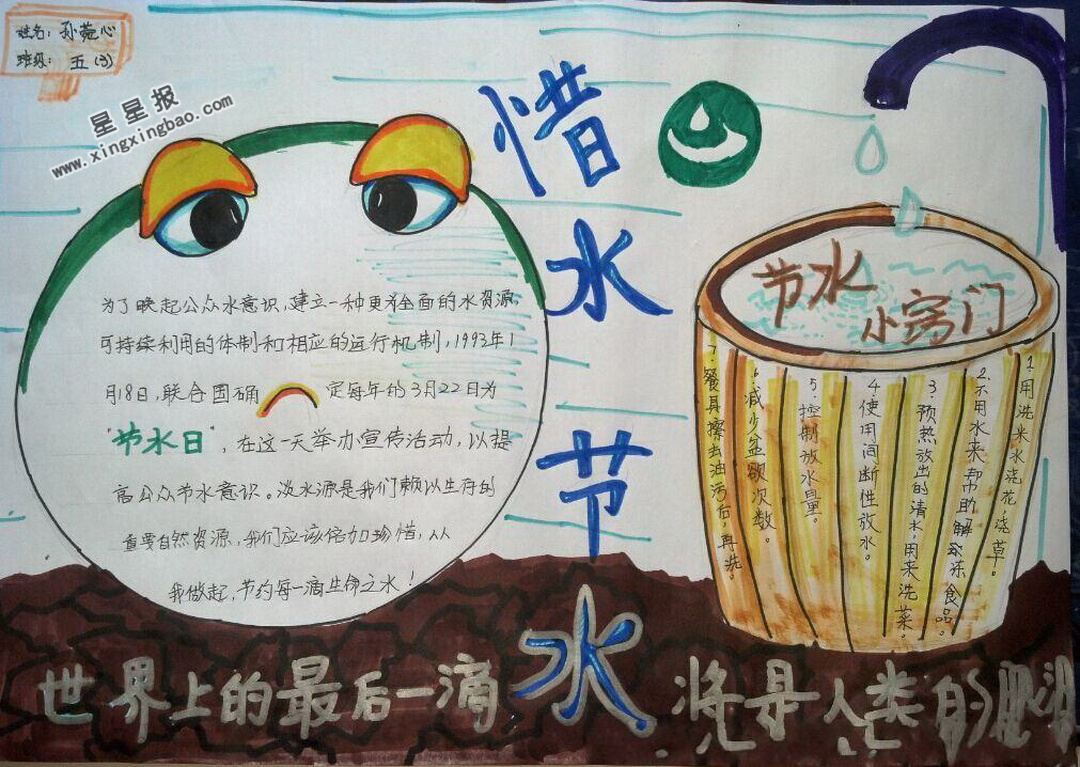 姓名：孙菀心
班级：五(3)
星星报
www.xingxingbao.com
惜水节水
为了唤起公众水意识，建立一种更为全面的水资源
可持续利用的体制和相应的运行机制，1993年1
月18日，联合国确定每年的3月22日为
"节水日"，在这一天举办宣传活动，以提
高公众节水意识。淡水源是我们赖以生存的
重要自然资源，我们应该倍加珍惜，从
我做起，节约每一滴生命之水！
节水
小窍门
1.用洗米水浇花，浇草。
2.不用水来帮助解冻食品。
3.预热放出的清水，用来洗菜。
4.使用间断性放水。
5.控制放水量。
6.减少盆欲次数。
7.餐具擦去油污后，再洗。
世界上的最后一滴水将是人类的眼泪